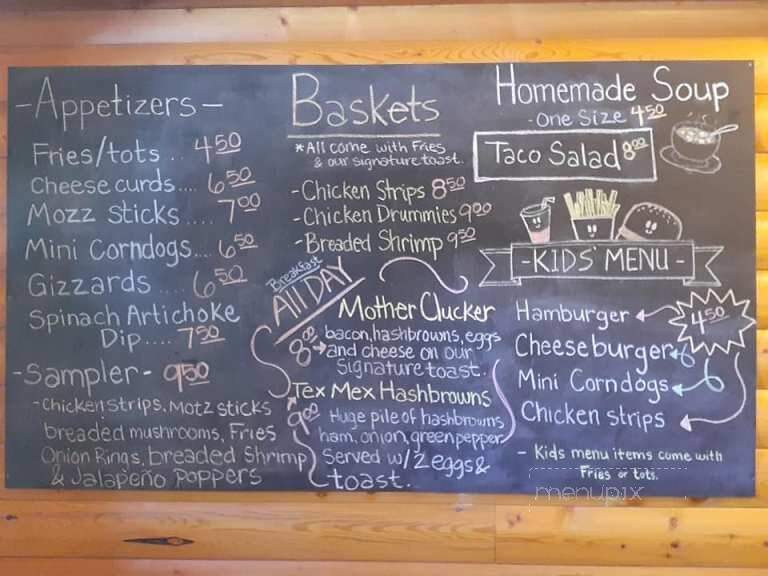 -Appetizers-
Fries/tots .. 4.50
Cheese curds.... 6.50
Mozz Sticks .... 7.00
Mini Corndogs... 6.50
Gizzards .... 6.50
Spinach Artichoke
Dip.... 7.50
-Sampler- 9.50
-Chicken strips, Motz sticks
breaded mushrooms, Fries
Onion Rings, breaded Shrimp
& Jalapeño Poppers
Baskets
*All come with Fries
& our signature toast.
-Chicken Strips 8.50
-Chicken Drummies 9.00
-Breaded Shrimp 9.50
Breakfast
All DAY
Mother Clucker
8.00 bacon, hashbrowns, eggs
and cheese on our
Signature toast.
Tex Mex Hashbrowns
9.00 Huge pile of hashbrowns
ham, onion, green pepper
Served w/ 2 eggs &
toast.
Homemade Soup
-One Size 4.50
Taco Salad 8.00
-KIDS' MENU-
4.50
Hamburger
Cheeseburger
Mini Corndogs
Chicken strips
- Kids menu items come with
Fries or tots.
menupix